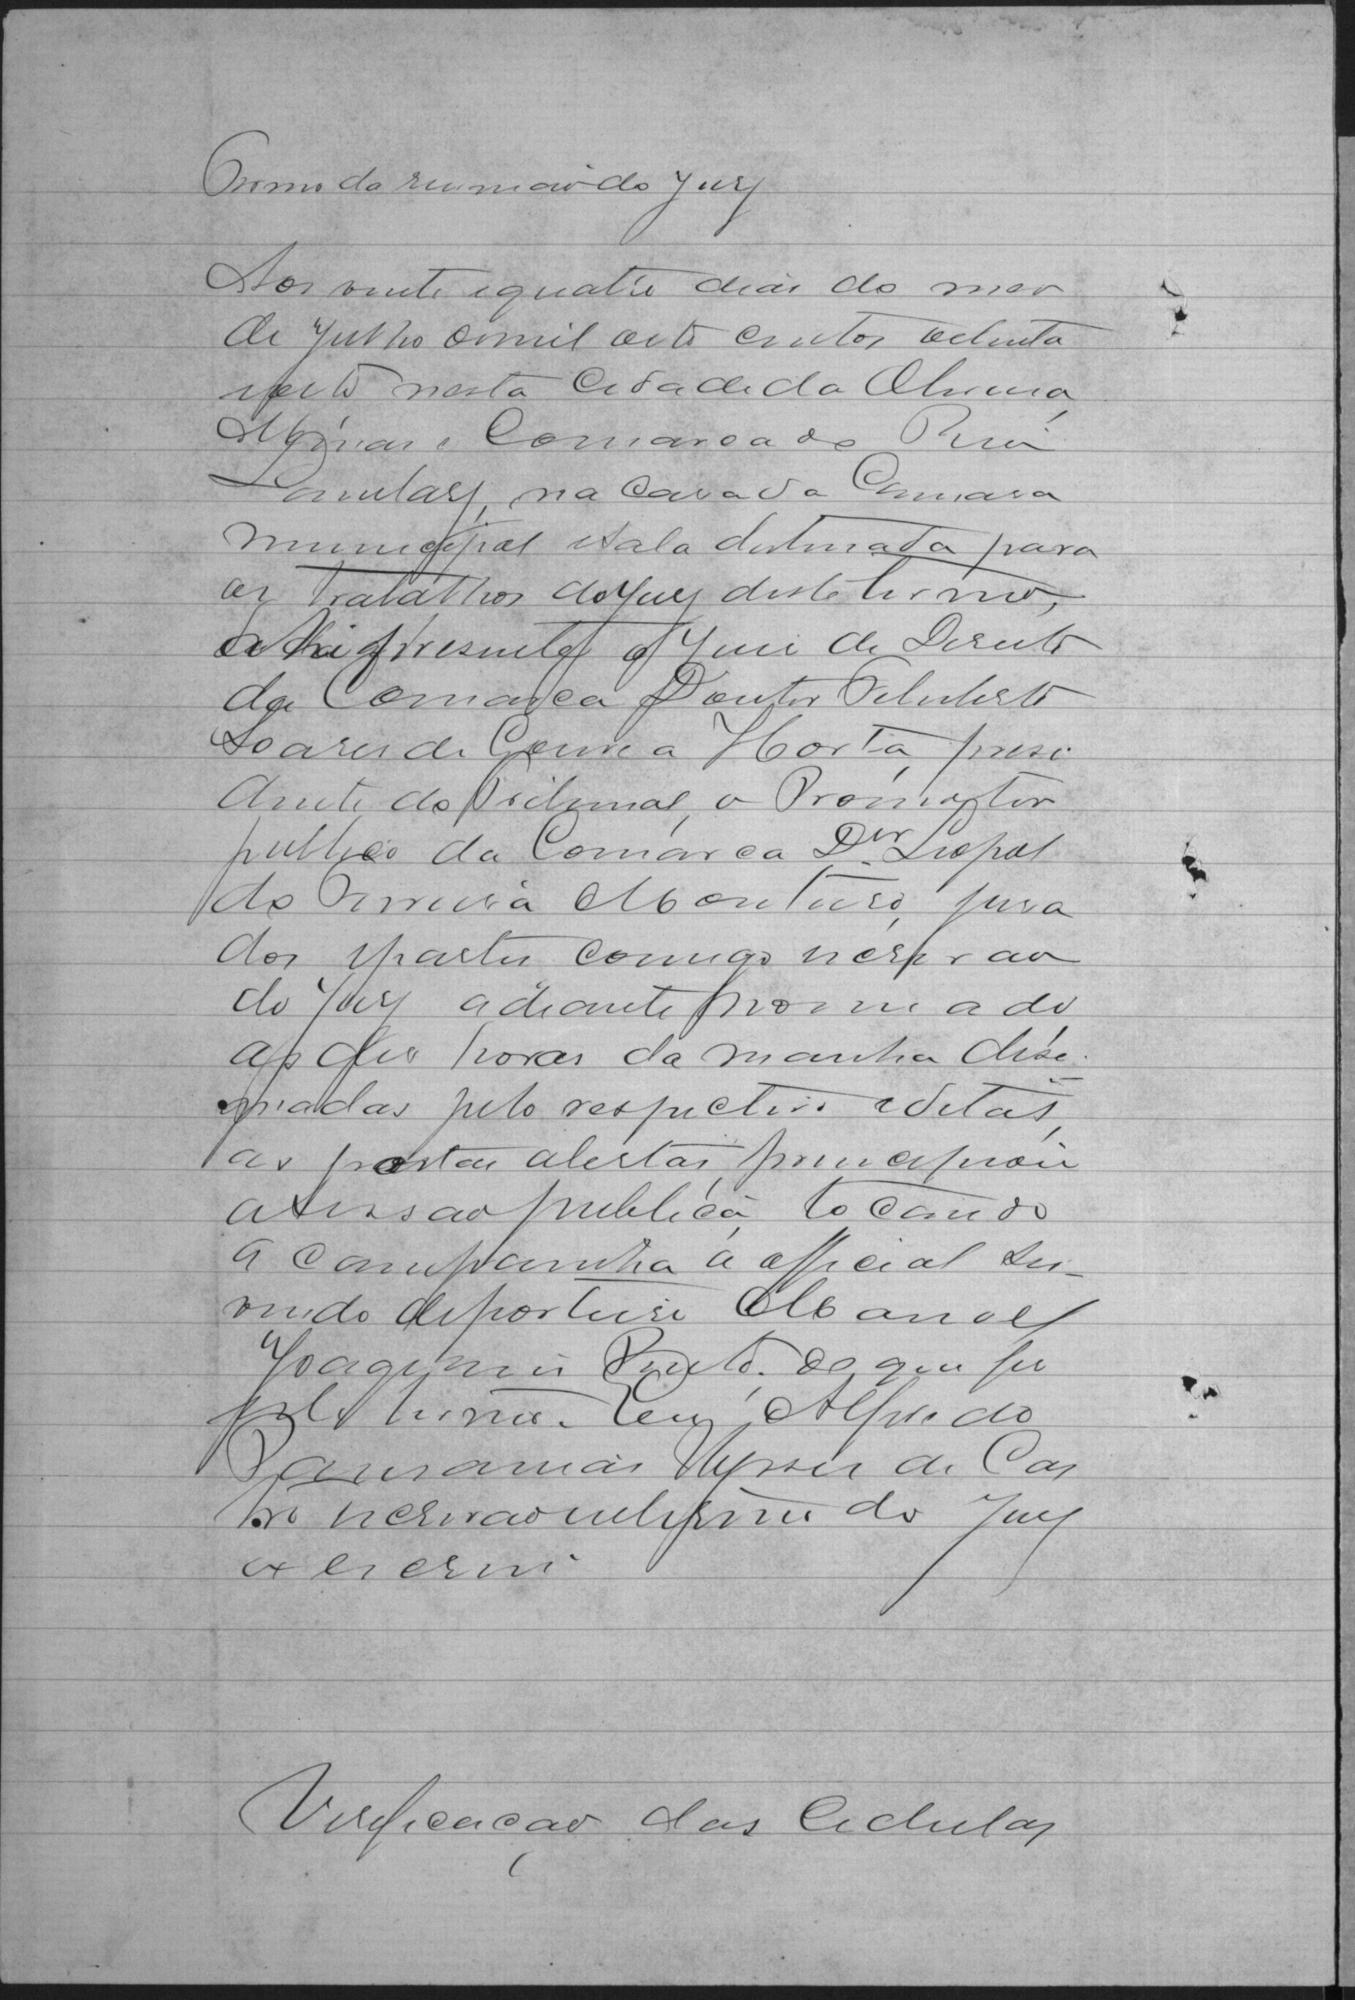 Termo da reunião do Jury
Aos vinte e quatro dias do mez
de Julho de mil oito centos oitenta
e oito nesta Cidade da Oliveira
Minas e Comarca do Rio
Lambary, na casa da Camara
Municipal e sala destinada para
os trabalhos do Jury deste termo,
ahi presente o Juiz de Direito
da Comarca Doutor Feliberto
Soares de Gouvea Horta, presi
dente do Tribunal, o Promotor
publico da Comarca Dor Leopol
do Ferreira Monteiro, jura
dos e partes comigo escrivão
do Jury adiante nomeado
as dez horas da manha desi
gnadas pelo respectivo edital,
as portas abertas, principiou
a sessão publica, tocando
a campanha o official ser
vindo de porteiro Manoel
Joaquim Pinto, do que fiz
este termo. Eu, Alfredo
Ulysses de Cas
tro escrivão interino do Jury
o escrevi
Verificação das Cedulas